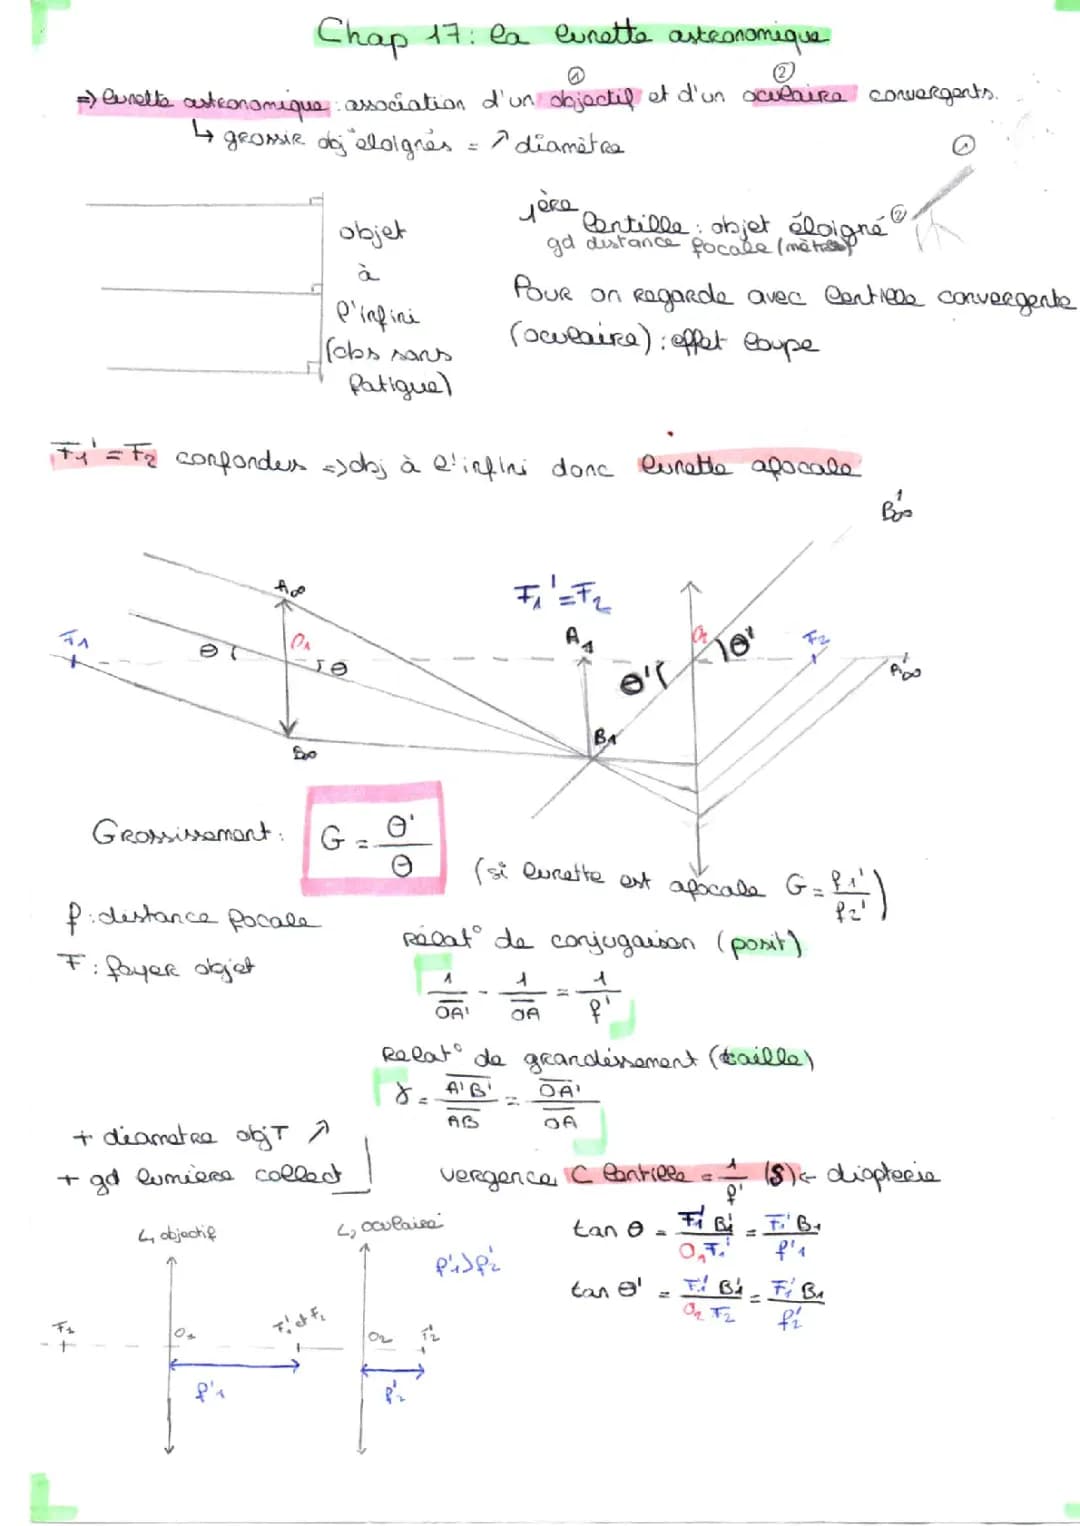 Chap 17: la lunette astronomique
① ②
=> lunette astronomique: association d'un objectif et d'un oculaire convergents.
↳ grossir obj éloignés = ↗ diamètre
①
②
objet
à
l'infini
(obs sans
fatigue)
1ère lentille: objet éloigné
gd distance focale (mètres)
Pour on regarde avec lentille convergente
(oculaire): effet loupe
F1' = F2 confondus => obj à l'infini donc lunette afocale
B'∞
A∞
F1' = F2
F1
θ
O1
θ
A1
θ'
O2
θ'
F2
A'∞
B∞
B1
Grossissement: G = θ'/θ
(si lunette est afocale G = f1'/f2')
f: distance focale
F: foyer objet
Relat° de conjugaison (posit)
1/OA' - 1/OA = 1/f'
Relat° de grandissement (taille)
γ = A'B'/AB = OA'/OA
+ diametre objT ↗
+ gd lumiere collect
vergence C lentille = 1/f' (δ) <- dioptrie
tan θ = F1'B1/O1F1' = F1'B1/f'1
tan θ' = F1'B1/O2F2 = F1'B1/f2'
L1 objectif
L2 oculaire
f'1 > f'2
F1
O1
F1' et F2
O2
F'2
f'1
f'2